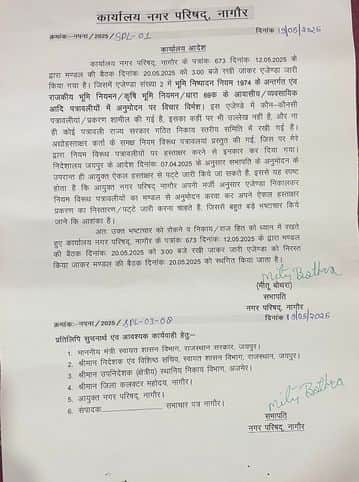 कार्यालय नगर परिषद्, नागौर
क्रमांक:-नपना/2025/SPL-01
दिनांक 19/05/2025
कार्यालय आदेश
कार्यालय नगर परिषद्, नागौर के पत्रांक 673 दिनांक 12.05.2025 के
द्वारा मण्डल की बैठक दिनांक 20.05.2025 को 3:00 बजे रखी जाकर एजेण्डा जारी
किया गया है। जिसमें एजेण्डा संख्या 2 में भूमि निष्पादन नियम 1974 के अन्तर्गत एवं
राजकीय भूमि नियमन/कृषि भूमि नियमन/धारा 69क के आवासीय/व्यवसायिक
आदि पत्रावलीयों में अनुमोदन पर विचार विमर्श। इस एजेण्डे में कौन-कौनसी
पत्रावलीयां/प्रकरण शामील की गई है, इसका कहीं पर भी उल्लेख नहीं है, और ना
ही कोई पत्रावली राज्य सरकार गठित निकाय स्तरीय समिति में रखी गई है।
अद्योहस्ताक्षर कर्ता के समक्ष नियम विरूध पत्रावली प्रस्तुत की गई, जिस पर मेरे
द्वारा नियम विरूध पत्रावलीयों पर हस्ताक्षर करने से इनकार कर दिया गया।
निदेशालय जयपुर के आदेश दिनांक 07.04.2025 के अनुसार सभापति के अनुमोदन के
उपरान्त ही आयुक्त ऐकल हस्ताक्षर से पट्टे जारी किये जा सकते है, इससे यह स्पष्ट
होता है कि आयुक्त नगर परिषद् नागौर अपनी मर्जी अनुसार एजेण्डा निकालकर
नियम विरूध पत्रावलीयों का मण्डल से अनुमोदन करवा कर अपने ऐकल हस्ताक्षर
प्रकरण का निस्तारण/पट्टे जारी करना चाहते है, जिससे बहुत बड़े भष्टाचार किये
जाने कि आशंका है।
अतः उक्त भष्टाचार को रोकने व निकाय/राज हित को ध्यान में रखते
हुए कार्यालय नगर परिषद्, नागौर के पत्रांक 673 दिनांक 12.05.2025 के द्वारा मण्डल
की बैठक दिनांक 20.05.2025 को 3:00 बजे रखी जाकर जारी एजेण्डा को निरस्त
किया जाकर मण्डल की बैठक दिनांक 20.05.2025 को स्थगित किया जाता है।
Mitu Bothra
(मीतू बोथरा)
सभापति
नगर परिषद्, नागौर
क्रमांक:-नपना/2025/SPL-03-08
दिनांक 19/05/2025
प्रतिलिपि सुचनार्थ एवं आवश्यक कार्यवाही हेतु:-
1. माननीय मंत्री स्वायत शासन विभाग, राजस्थान सरकार, जयपुर।
2. श्रीमान निदेशक एंव विशिष्ठ सचिव, स्वायत शासन विभाग, राजस्थान, जयपुर।
3. श्रीमान उपनिदेशक (क्षेत्रीय) स्थानिय निकाय विभाग, अजमेर।
4. श्रीमान जिला कलक्टर महोदय, नागौर।
5. आयुक्त नगर परिषद्, नागौर।
6. संपादक____________ समाचार पत्र नागौर।
Mitu Bothra
सभापति
नगर परिषद्, नागौर